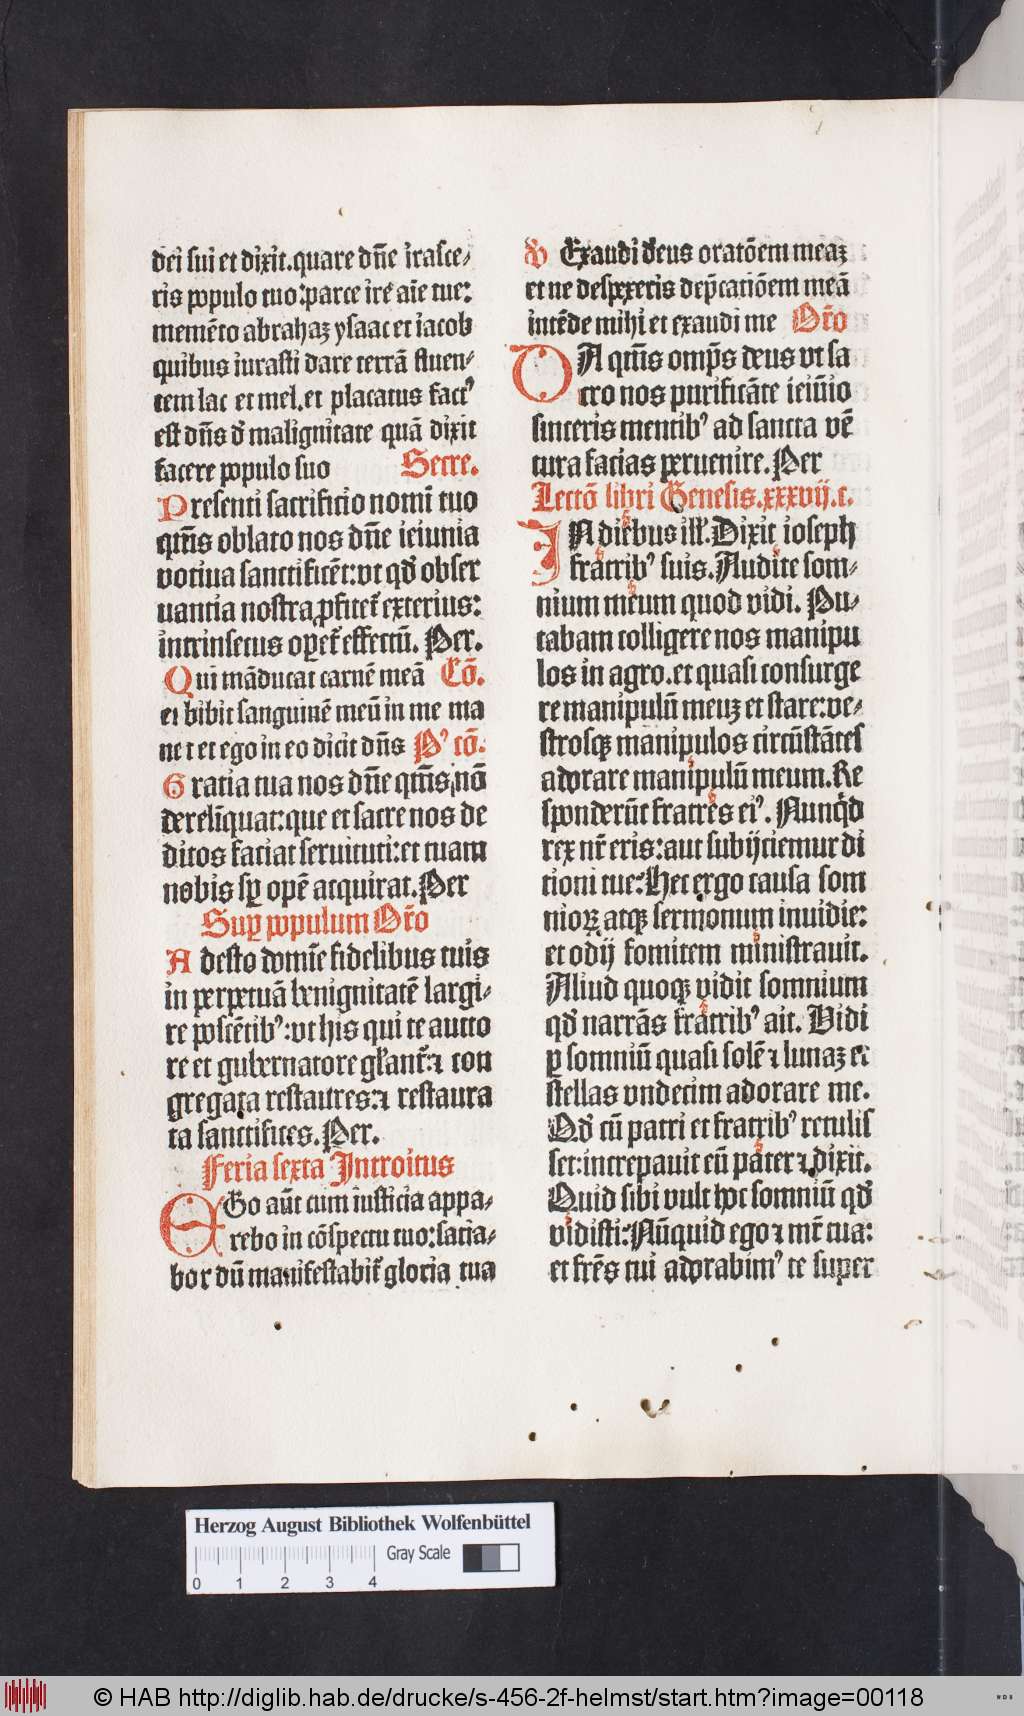 dei sui et dixit.quare dn̄e irasce⸗
ris populo tuo:parce ire̅ aīe tue:
memēto abrahaꝫ ysaac et iacob
quibus iurasti dare terrā fluen⸗
tem lac et mel.et placatus factꝰ
est dn̄s d̄ malignitate quā dixit
facere populo suo Secre.
Presenti sacrificio nomī tuo
qm̄s oblato nos dn̄e ieiunia
votiua sanctificēt:vt qd̄ obser
uantia nostra ꝓfitet̄ exterius:
intrinsecus oꝑet̄ effectū. Per.
Qui māducat carnē meā Cō.
et bibit sanguinē meū in me ma
net et ego in eo dicit dn̄s Pꝰ cō.
Gratia tua nos dn̄e qm̄s nō
derelīquat:que et sacre nos de
ditos faciat seruituti:et tuam
nobis sꝑ opē acquirat.Per
Suꝑ populum Or̄o
Adesto domīe fidelibus tuis
in perpetuā benignitatē largi⸗
re poscētibꝰ:vt his qui te aucto
re et gubernatore gl̄ant̄:⁊ con
gregata restaures:⁊ restaura
ta sanctifices.Per.
Feria sexta Introitus
EGo aūt cum iusticia appa⸗
rebo in cōspectu tuo:satia⸗
bor dū manifestabit̄ gloria tua
V Exaudi deus oratōem meaꝫ
et ne despexeris dep̄catiōem meā
intēde mihi et exaudi me Or̄o
DA qm̄s omp̄s deus vt sa
cro nos purificāte ieiūio
sinceris mentibꝰ ad sancta vē
tura facias peruenire.Per
Lectō libri Genesis.xxxvij.c.
IN diebus ill̄.Dixit ioseph
fratribꝰ suis.Audite som⸗
nium meum quod vidi. Pu⸗
tabam colligere nos manipu
los in agro.et quasi consurge
re manipulū meuꝫ et stare:ve⸗
strosqꝫ manipulos circūstātes
adorare manipulū meum.Re
sponderūt fratres eiꝰ. Nunqd̄
rex nr̄ eris:aut subijciemur di
tioni tue:Hec ergo causa som
nioꝝ atqꝫ sermonum inuidie:
et odij fomitem ministrauit.
Aliud quoqꝫ vidit somnium
qd̄ narrās fratribꝰ ait. Vidi
ꝑ somniū quasi solē ⁊ lunaꝫ et
stellas vndecim adorare me.
Qd̄ cū patri et fratribꝰ retulis
set:increpauit eū pater ⁊ dixit.
Quid sibi vult hoc somniū qd̄
vidisti:Nūquid ego ⁊ mr̄ tua:
et fr̄es tui adorabimꝰ te super
Herzog August Bibliothek Wolfenbüttel
Gray Scale
0 1 2 3 4
© HAB http://diglib.hab.de/drucke/s-456-2f-helmst/start.htm?image=00118